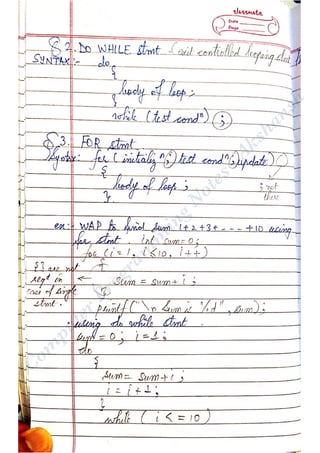 classmate
Date
Page
§ 2. DO WHILE stmt (exit controlled looping stmt)
SYNTAX:- do
{
body of loop;
while (test condⁿ) ;
§ 3. FOR stmt
Syntax: for (initializⁿ; test condⁿ; update)
{
body of loop ;
}
; not
there
ex:- WAP to find sum 1+2+3+ - - - - +10 using
for stmt. int sum=0;
for (i=1, i≤10, i++)
{
{} are not
reqᵈ in
case of single
stmt.
← sum = sum+i ;
printf ("\n Sum is %d", sum);
• using do while stmt.
sum = 0; i=1;
do
{
sum = sum+i ;
i = i+1;
}
while ( i <= 10)